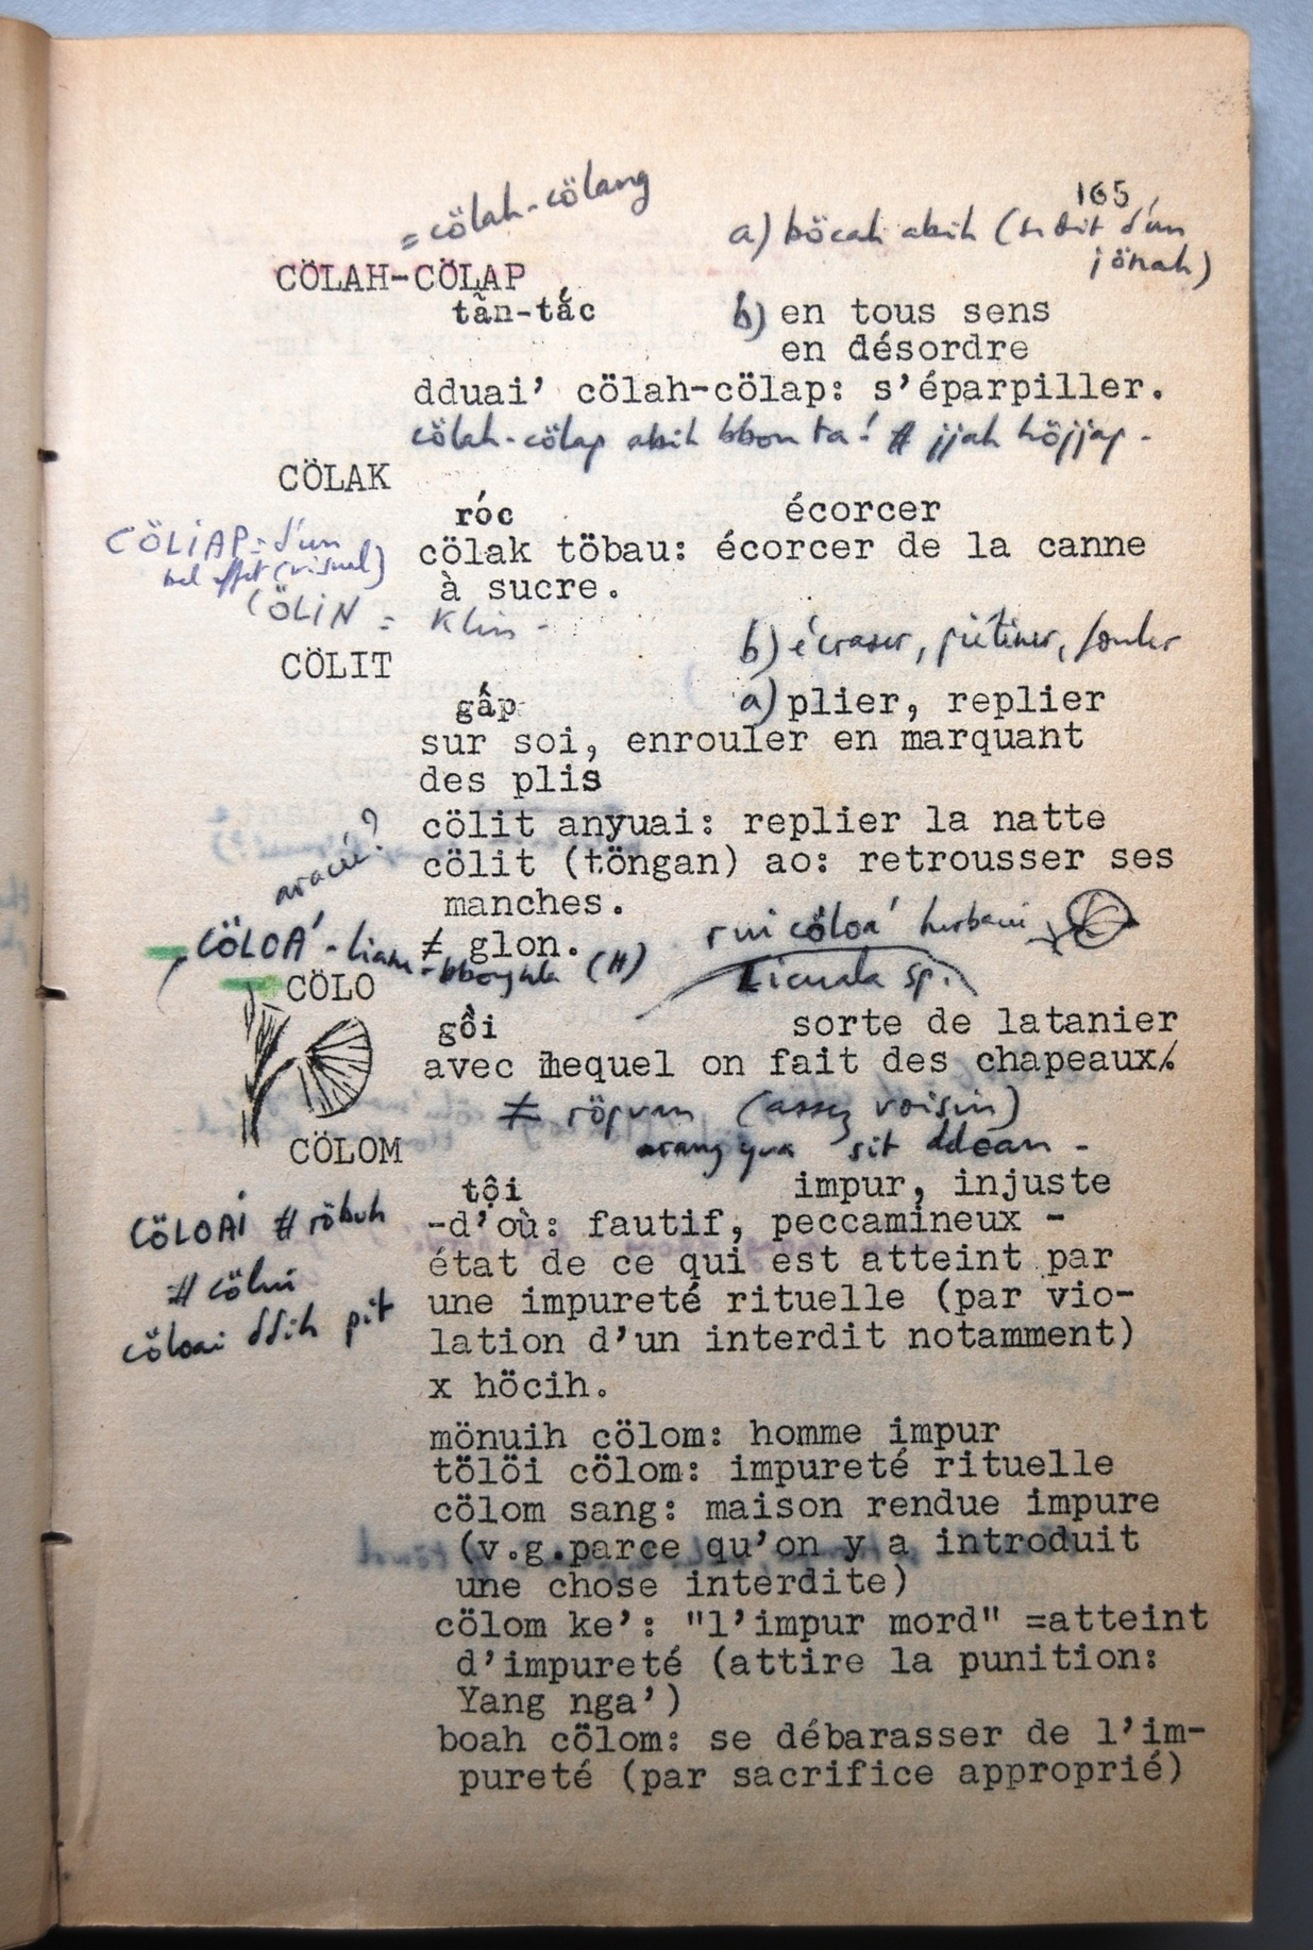 165
= cölah-cölang
a) böcah abih (se dit d'un
jönah)
CÖLAH-CÖLAP
tẫn-tắc b) en tous sens
en désordre
dduai’ cölah-cölap: s’éparpiller.
cölah-cölap abih bbon ta! # jjah höjjap -
CÖLAK
róc écorcer
CÖLIAP = d'un
bel effet (visuel)
cölak töbau: écorcer de la canne
à sucre.
CÖLIN = klin -
b) écraser, piétiner, fouler
CÖLIT
gấp a) plier, replier
sur soi, enrouler en marquant
des plis
cölit anyuai: replier la natte
cölit (töngan) ao: retrousser ses
manches.
≠ glon.
CÖLOA' - (H)
cöloa'
Licuala sp.
CÖLO
gồi sorte de latanier
avec lequel on fait des chapeaux.
≠ röpvan (assez voisin)
sit ddoan -
CÖLOM
tội impur, injuste
CÖLOAI # röbuh
-d’où: fautif, peccamineux -
état de ce qui est atteint par
# cölui
une impureté rituelle (par vio-
cöloai ddih pit
lation d’un interdit notamment)
x höcih.
mönuih cölom: homme impur
tölöi cölom: impureté rituelle
cölom sang: maison rendue impure
(v.g.parce qu’on y a introduit
une chose interdite)
cölom ke’: "l’impur mord" =atteint
d’impureté (attire la punition:
Yang nga’)
boah cölom: se débarasser de l’im-
pureté (par sacrifice approprié)